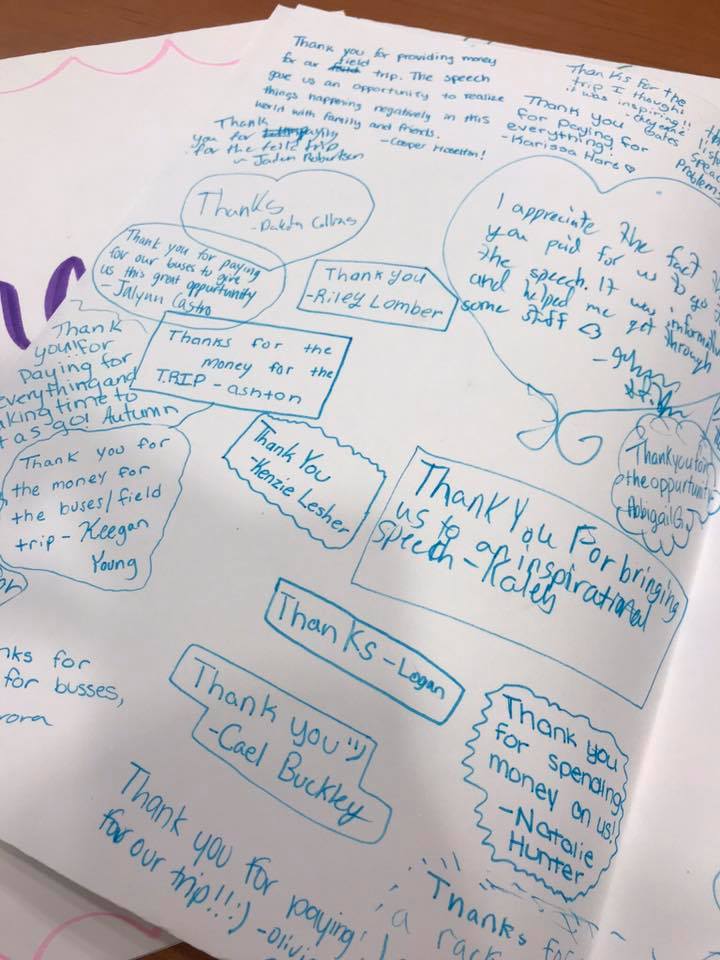 Thank you for providing money
for our field trip. The speech
gave us an opportunity to realize
things happening negatively in this
world with family and friends.
-Cooper
Thanks for the
trip I thought
it was inspiring!!
Thank you
for paying for
everything!
-Karissa Hare
Thank
you for paying
for the feild trip
~ Jaden Robertson
Thanks
-Dakota Collins
Thank you for paying
for our buses to give
us this great opportunity
-Jalynn Castro
Thank you
-Riley Lomber
I appreciate the fact
you paid for us to go
the speech. It was
and helped me get through
some stuff <3
Thank
you!! for
paying for
everything and
taking time to
us go! Autumn
Thanks for the
money for the
TRIP - ashton
Thank you for
the money for
the buses/field
trip - Keegan
Young
Thank You
-Kenzie Lesher
Thank you for
the oppurtunity
Abigail G.
Thank You For bringing
us to an inspirational
speech - Kaley
Thanks - Logan
for
for busses,
Thank you :)
-Cael Buckley
Thank you
for spending
money on us!
-Natalie
Hunter
Thank you for paying
for our trip!!! :)
Thanks for
a